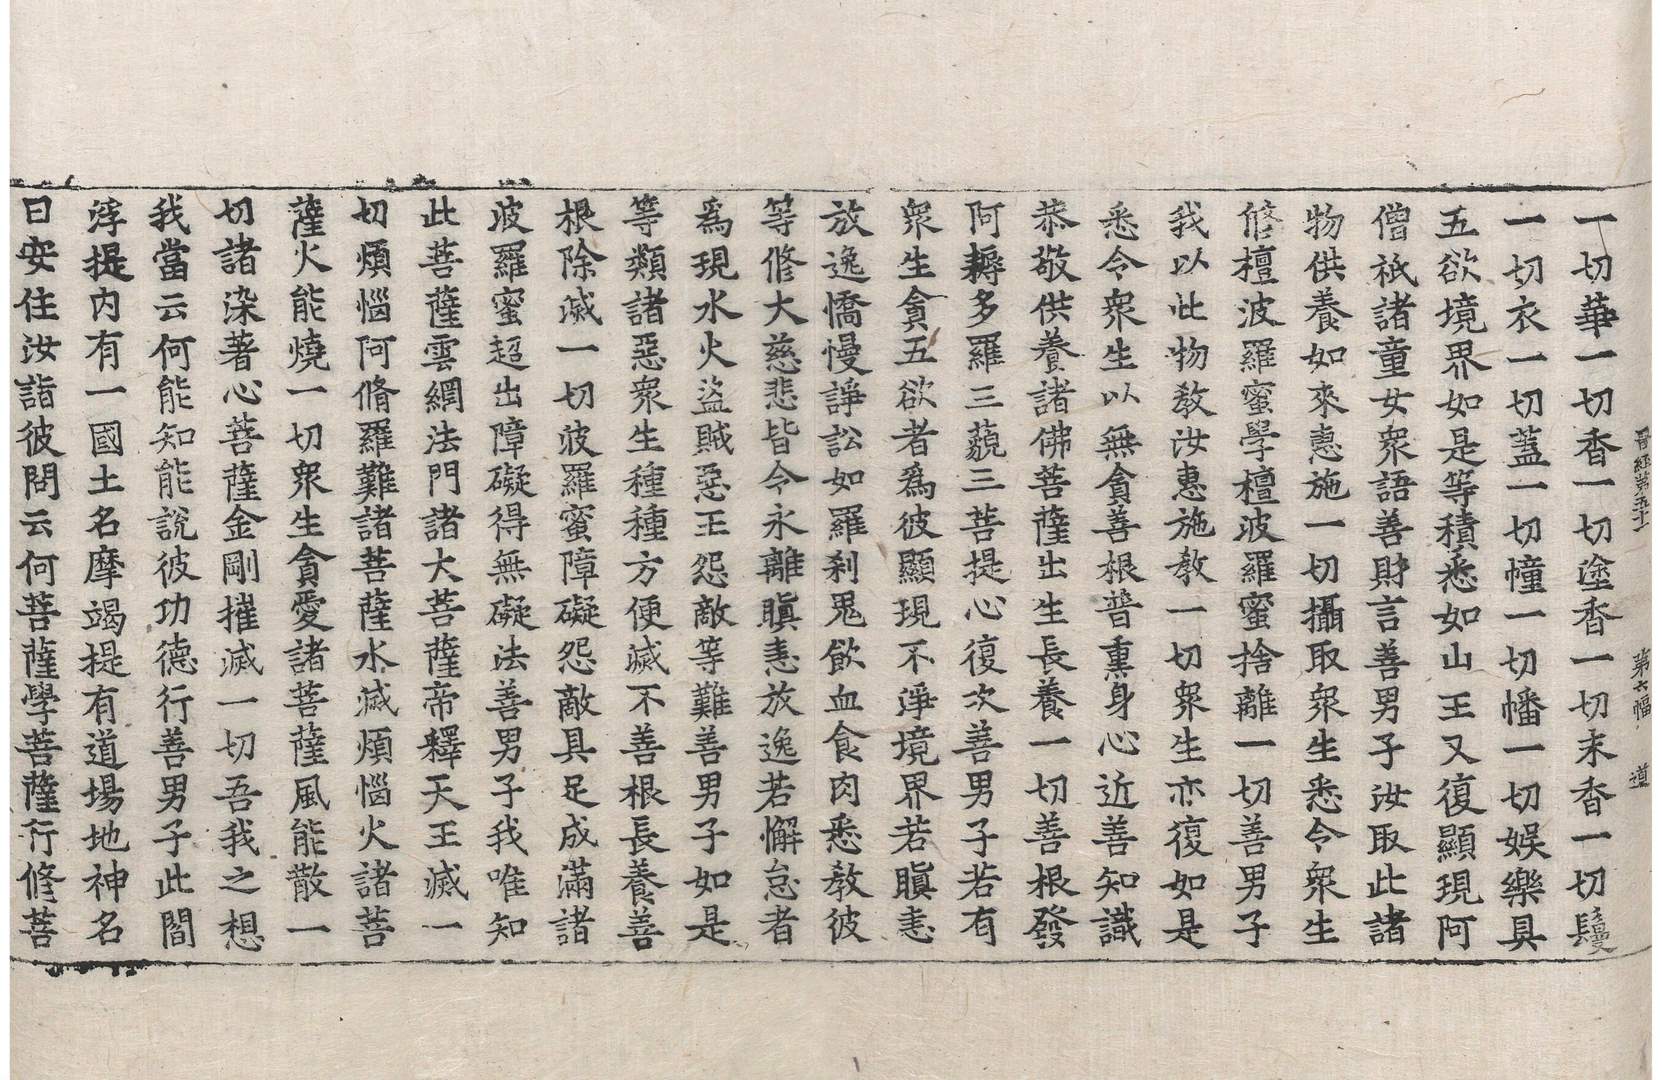 晋經第五十 第六幅 道
一切華一切香一切塗香一切末香一切鬘
一切衣一切蓋一切幢一切幡一切娛樂具
五欲境界如是等積悉如山王又復顯現阿
僧祇諸童女衆語善財言善男子汝取此諸
物供養如來惠施一切攝取衆生悉令衆生
修檀波羅蜜學檀波羅蜜捨離一切善男子
我以此物教汝惠施教一切衆生亦復如是
悉令衆生以無貪善根普熏身心近善知識
恭敬供養諸佛菩薩出生長養一切善根發
阿耨多羅三藐三菩提心復次善男子若有
衆生貪五欲者爲彼顯現不淨境界若瞋恚
放逸憍慢諍訟如羅刹鬼飲血食肉悉教彼
等修大慈悲皆令永離瞋恚放逸若懈怠者
爲現水火盜賊惡王怨敵等難善男子如是
等類諸惡衆生種種方便滅不善根長養善
根除滅一切波羅蜜障礙怨敵具足成滿諸
波羅蜜超出障礙得無礙法善男子我唯知
此菩薩雲網法門諸大菩薩帝釋天王滅一
切煩惱阿脩羅難諸菩薩水滅煩惱火諸菩
薩火能燒一切衆生貪愛諸菩薩風能散一
切諸染著心菩薩金剛摧滅一切吾我之想
我當云何能知能說彼功德行善男子此閻
浮提內有一國土名摩竭提有道場地神名
曰安住汝詣彼問云何菩薩學菩薩行修菩